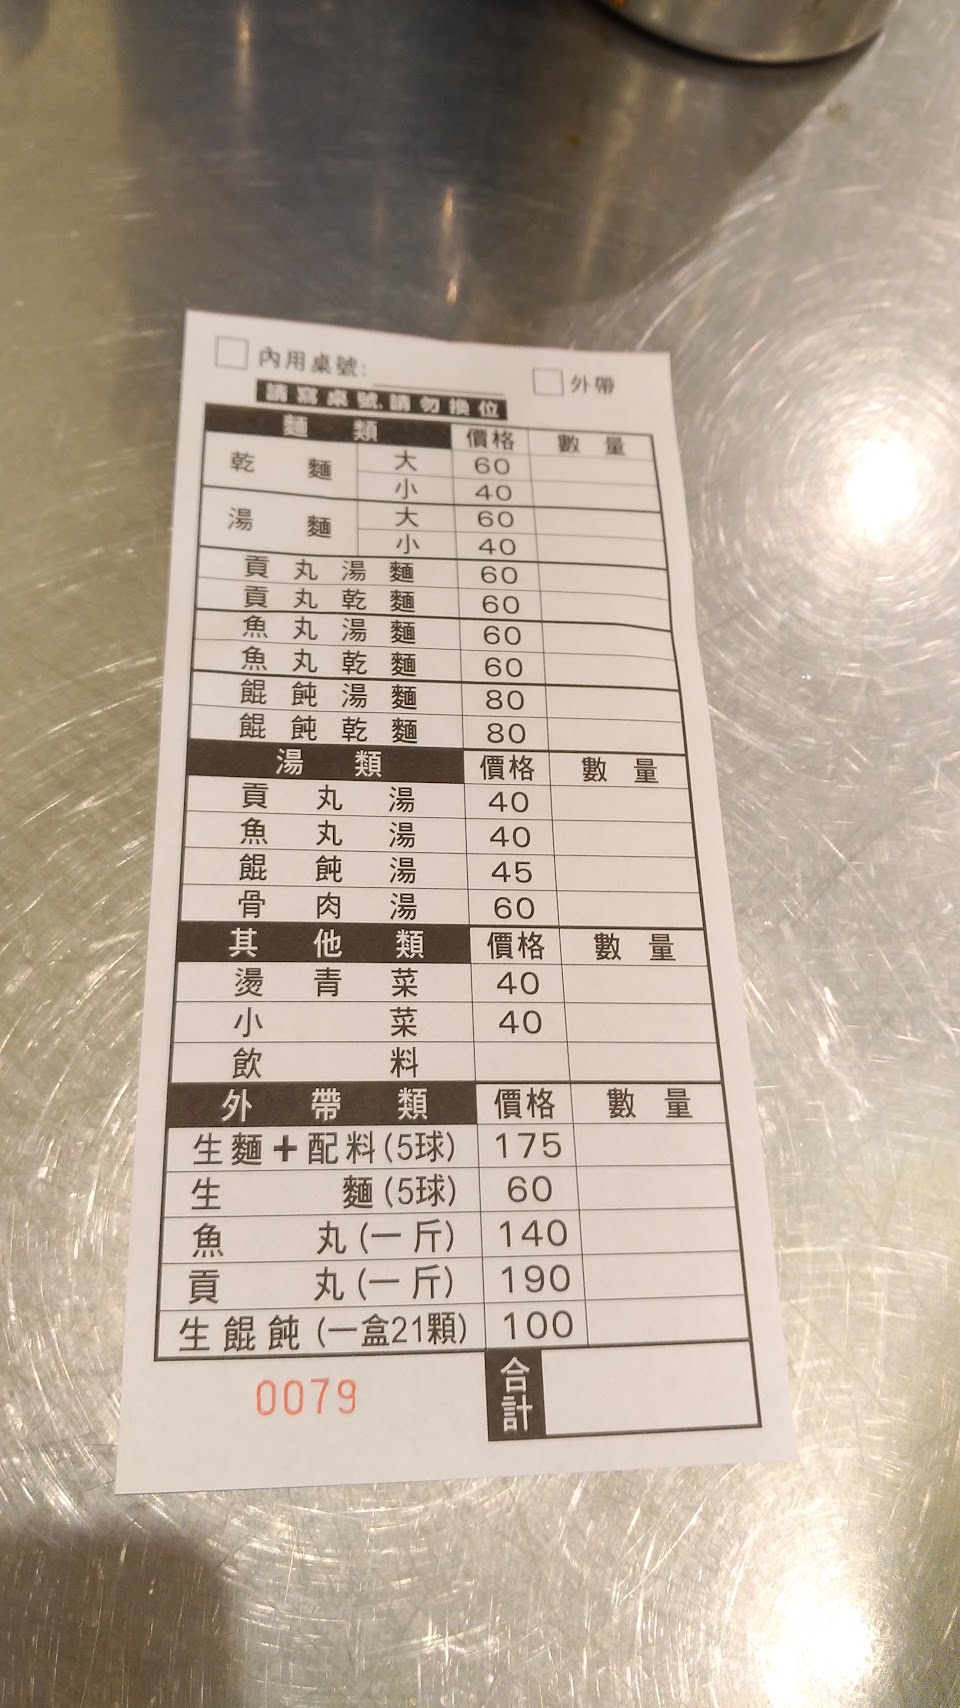 內用桌號: 外帶
請寫桌號,請勿換位
麵類 價格 數量
乾麵 大 60
小 40
湯麵 大 60
小 40
貢丸湯麵 60
貢丸乾麵 60
魚丸湯麵 60
魚丸乾麵 60
餛飩湯麵 80
餛飩乾麵 80
湯類 價格 數量
貢丸湯 40
魚丸湯 40
餛飩湯 45
骨肉湯 60
其他類 價格 數量
燙青菜 40
小菜 40
飲料
外帶類 價格 數量
生麵+配料(5球) 175
生麵(5球) 60
魚丸(一斤) 140
貢丸(一斤) 190
生餛飩(一盒21顆) 100
0079 合計